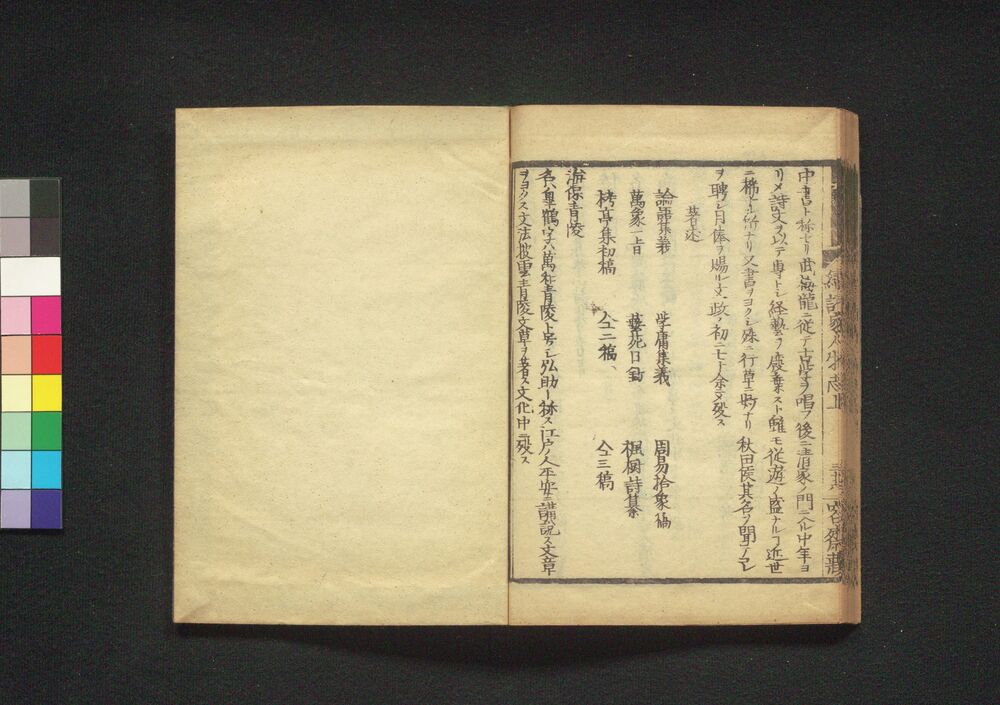 中書ト称セリ武海龍ニ従テ古学ヲ唱フ後ニ青家ノ門ニ入ル中年ヨ
リメ詩文ヲ以テ専トシ経藝ヲ廢棄スト雖モ從遊ノ盛ナルヿ近世
ニ稀ナル所ナリ又書ヲヨクシ殊ニ行草ニ妙ナリ秋田侯其名ヲ聞テコレ
ヲ聘シ月俸ヲ賜ル文政ノ初ニ七十余ニ歿ス
著述
論語集義 学庸集義 周易拾象稿
萬象一旨 藝苑日鈔 楓樹詩纂
栲亭集初稿 仝二稿、 仝三稿
海保青陵
名ハ皐鶴字ハ萬和青陵ト号シ弘助ト称ス江戸ノ人平安ニ講説ス文章
ヲヨクス文法披雲青陵文草ヲ著ス文化中ニ歿ス